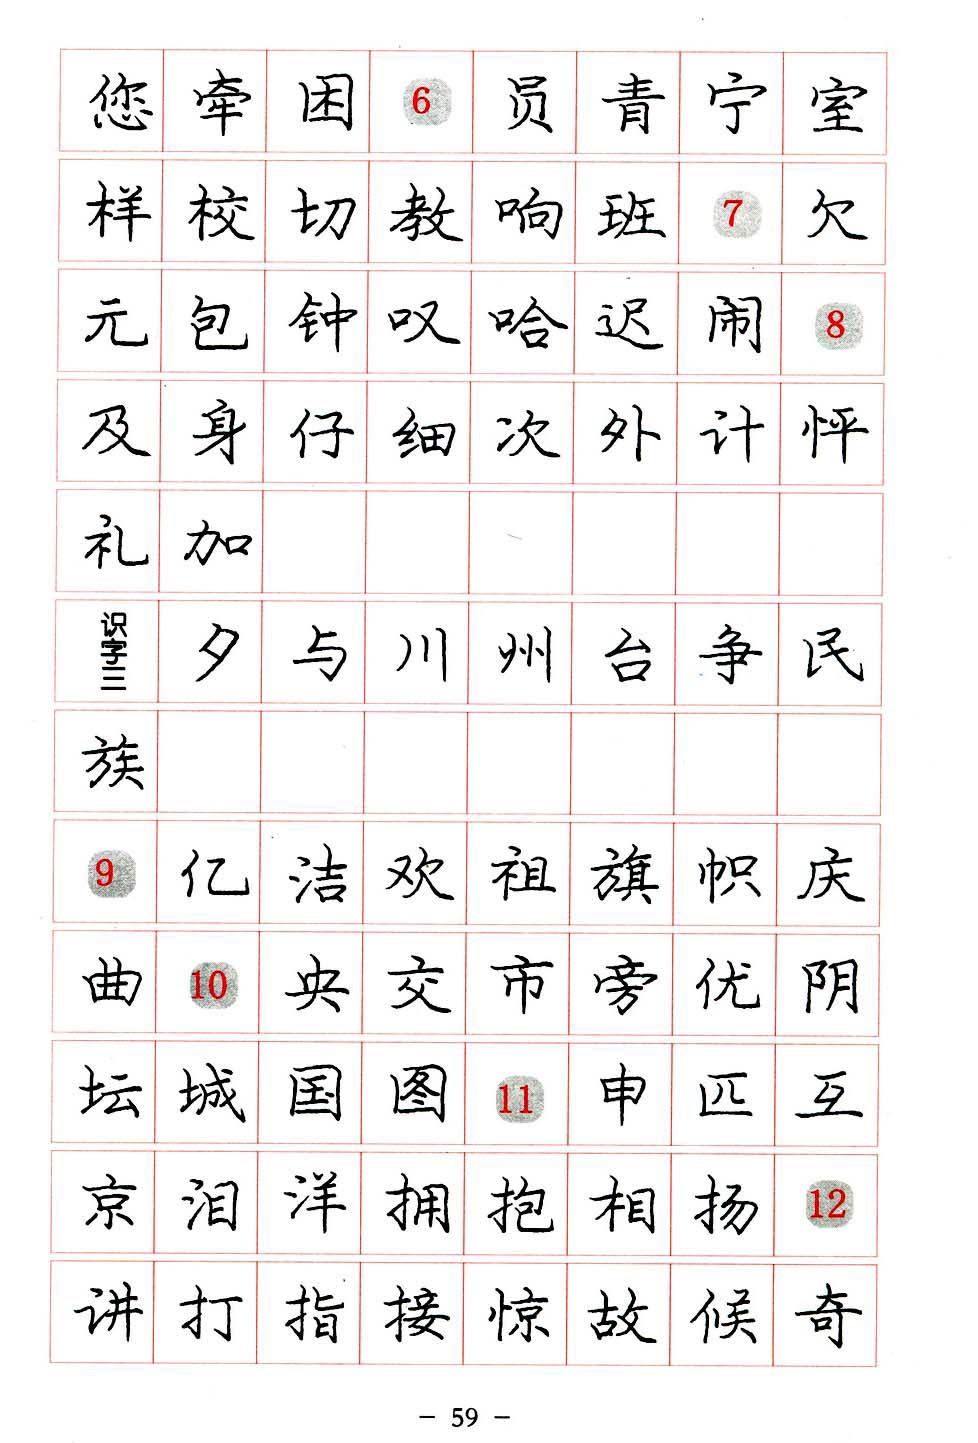 您 牵 困 6 员 青 宁 室
样 校 切 教 响 班 7 欠
元 包 钟 叹 哈 迟 闹 8
及 身 仔 细 次 外 计 怦
礼 加
识字三 夕 与 川 州 台 争 民
族
9 亿 洁 欢 祖 旗 帜 庆
曲 10 央 交 市 旁 优 阴
坛 城 国 图 11 申 匹 互
京 泪 洋 拥 抱 相 扬 12
讲 打 指 接 惊 故 候 奇
- 59 -